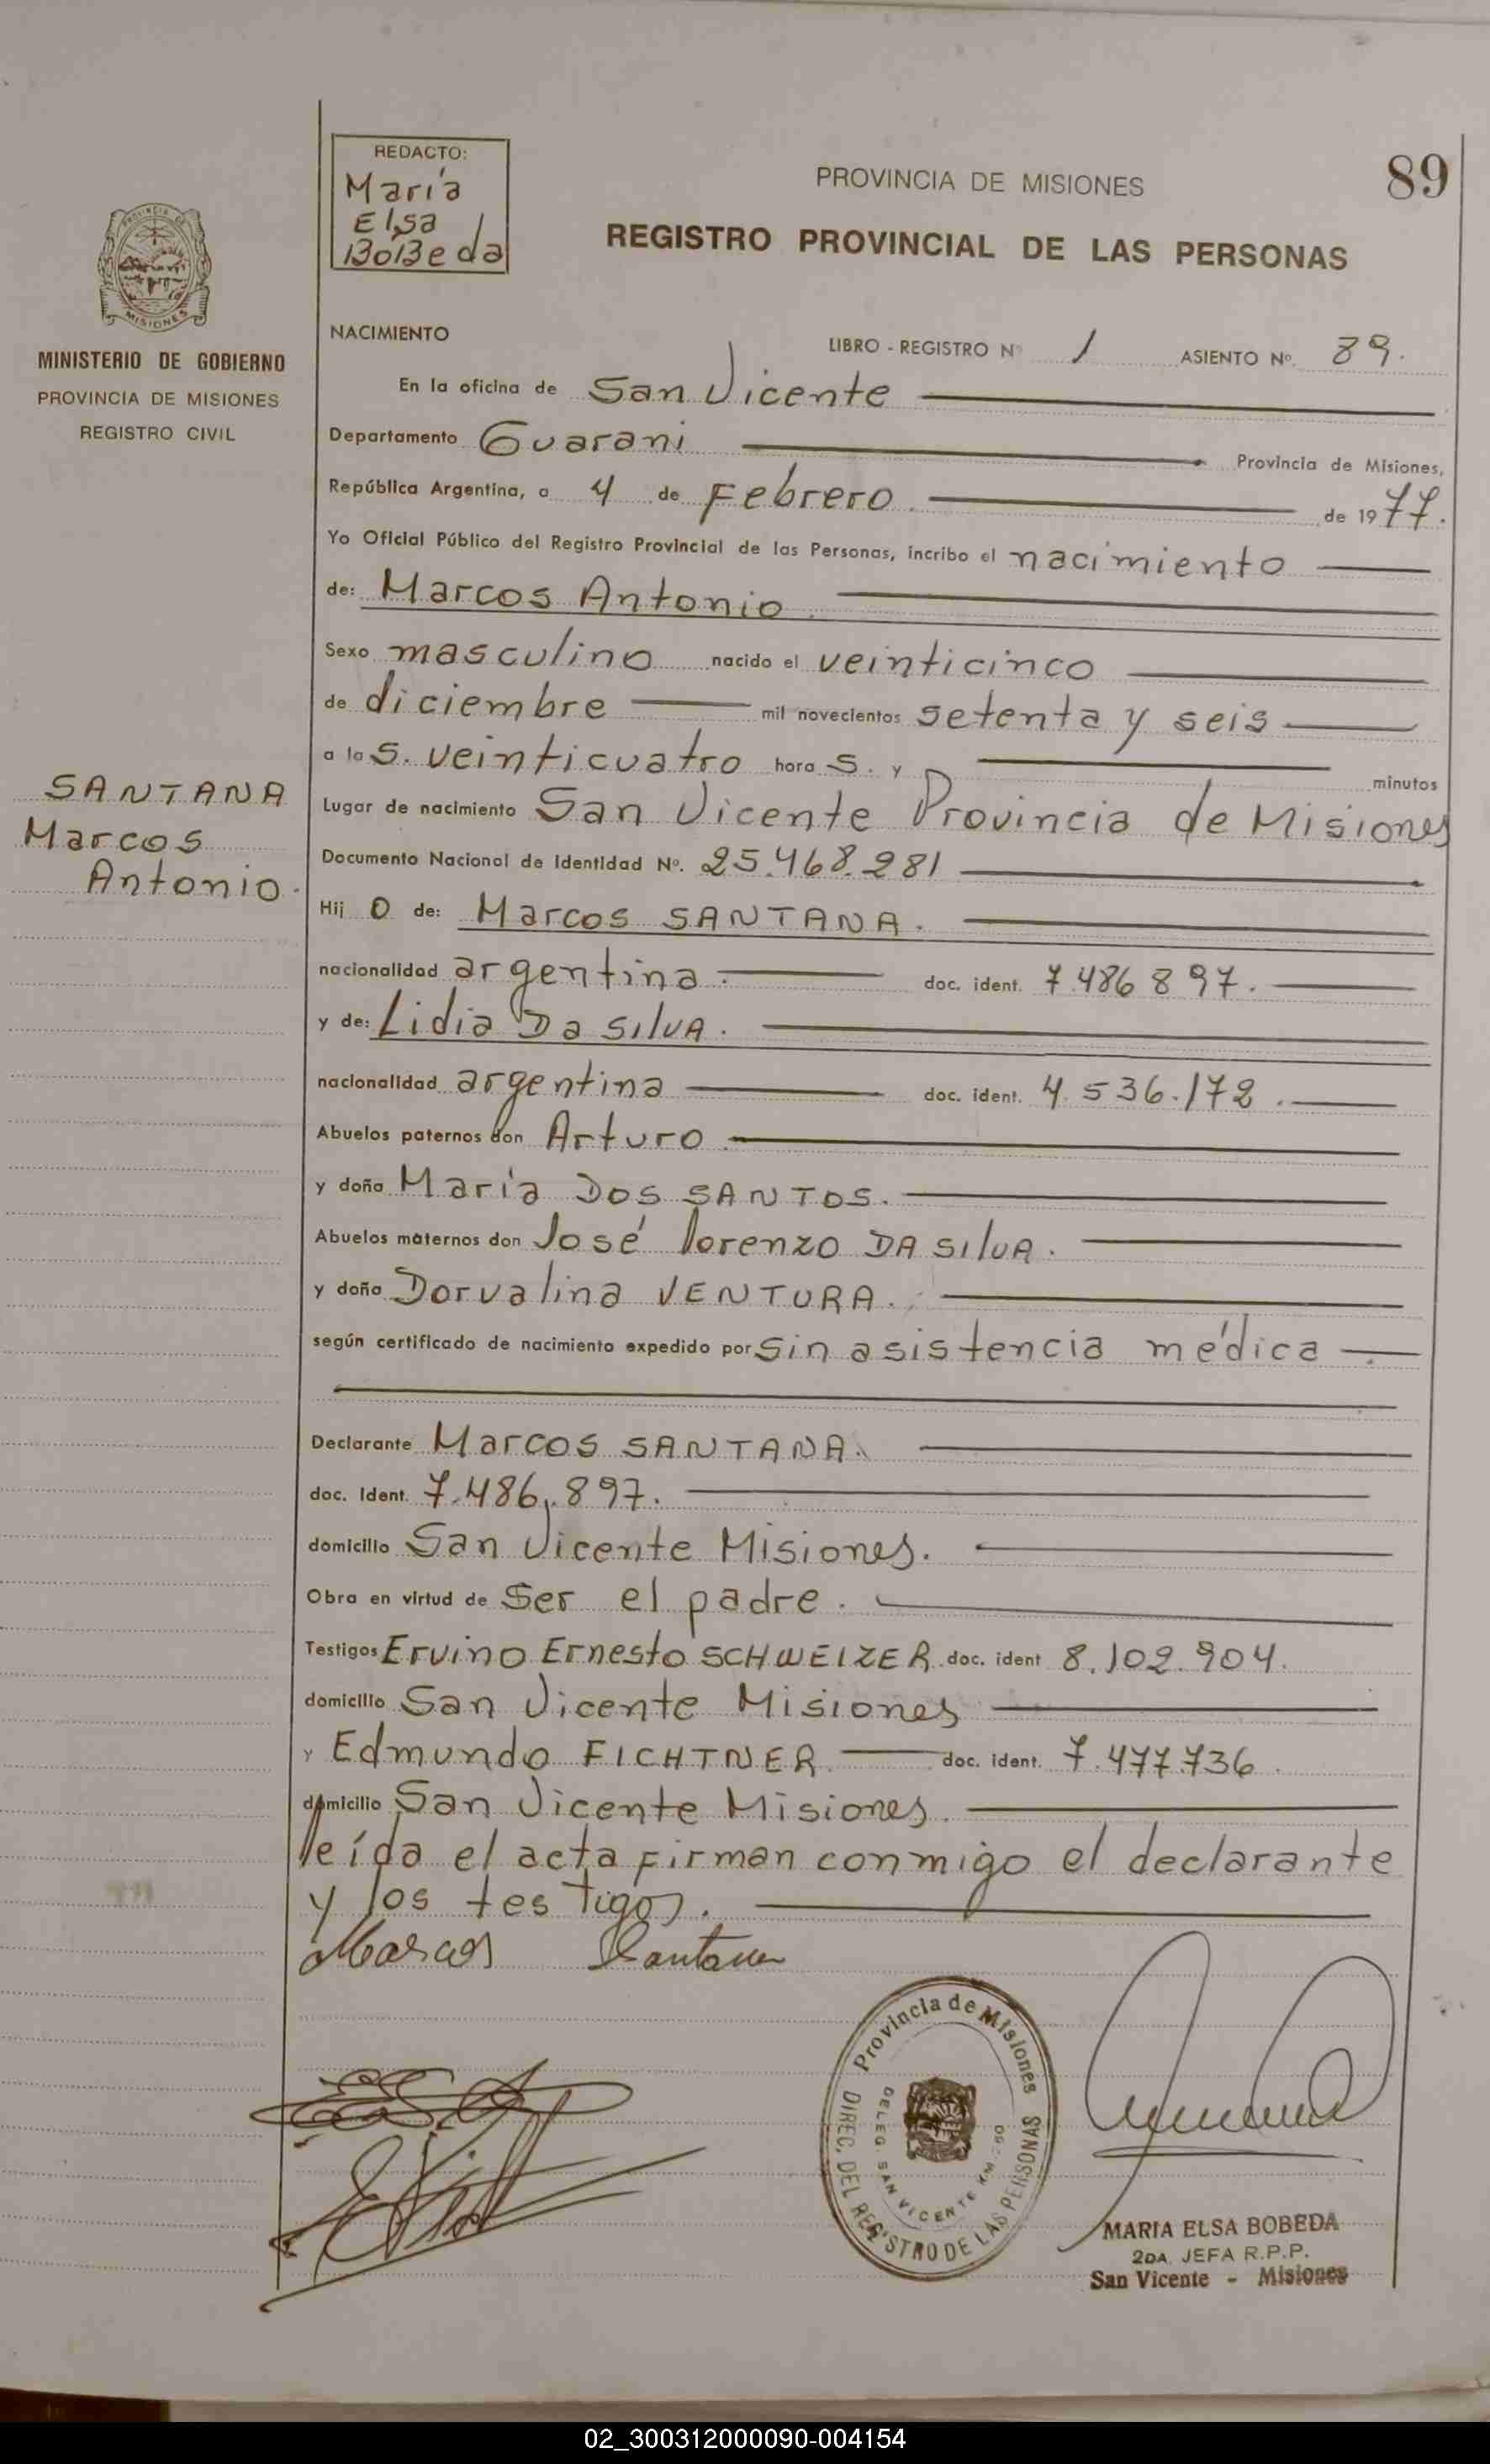 REDACTO:
María
Elsa
BoBeda
PROVINCIA DE MISIONES
89
REGISTRO PROVINCIAL DE LAS PERSONAS
PROVINCIA DE
MISIONES
MINISTERIO DE GOBIERNO
PROVINCIA DE MISIONES
REGISTRO CIVIL
NACIMIENTO
LIBRO - REGISTRO Nº 1 ASIENTO Nº. 89.
En la oficina de San Vicente
Departamento Guarani Provincia de Misiones,
República Argentina, a 4 de Febrero de 1977.
Yo Oficial Público del Registro Provincial de las Personas, incribo el nacimiento
de: Marcos Antonio
Sexo masculino nacido el veinticinco
de diciembre mil novecientos setenta y seis
a las. veinticuatro horas. y minutos
SANTANA
Marcos
Antonio.
Lugar de nacimiento San Vicente Provincia de Misiones
Documento Nacional de Identidad Nº. 25.468.281
Hijo de: Marcos SANTANA.
nacionalidad argentina. doc. ident. 7.486 897.
y de: Lidia Da SilvA.
nacionalidad argentina doc. ident. 4.536.172.
Abuelos paternos don Arturo
y doña María DOS SANTOS.
Abuelos maternos don José lorenzo DA SilvA.
y doña Dorvalina VENTURA.
según certificado de nacimiento expedido por Sin asistencia médica
Declarante Marcos SANTANA.
doc. Ident. 7.486.897.
domicilio San Vicente Misiones.
Obra en virtud de Ser el padre.
Testigos Ervino Ernesto SCHWEIZER doc. ident 8.102.904.
domicilio San Vicente Misiones
y Edmundo FICHTNER doc. ident. 7.477.736.
domicilio San Vicente Misiones.
leída el acta firman conmigo el declarante
y los testigos.
Marcos Santana
Provincia de Misiones
DIREC. DEL REGISTRO DE LAS PERSONAS
DELEG. SAN VICENTE KM. 260
MARIA ELSA BOBEDA
2DA. JEFA R.P.P.
San Vicente - Misiones
02_300312000090-004154